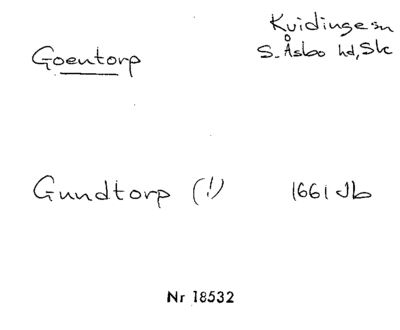 Kvidinge sn
Goentorp S. Åsbo hd, Sk
Gundtorp (!) 1661 Jb
Nr 18532